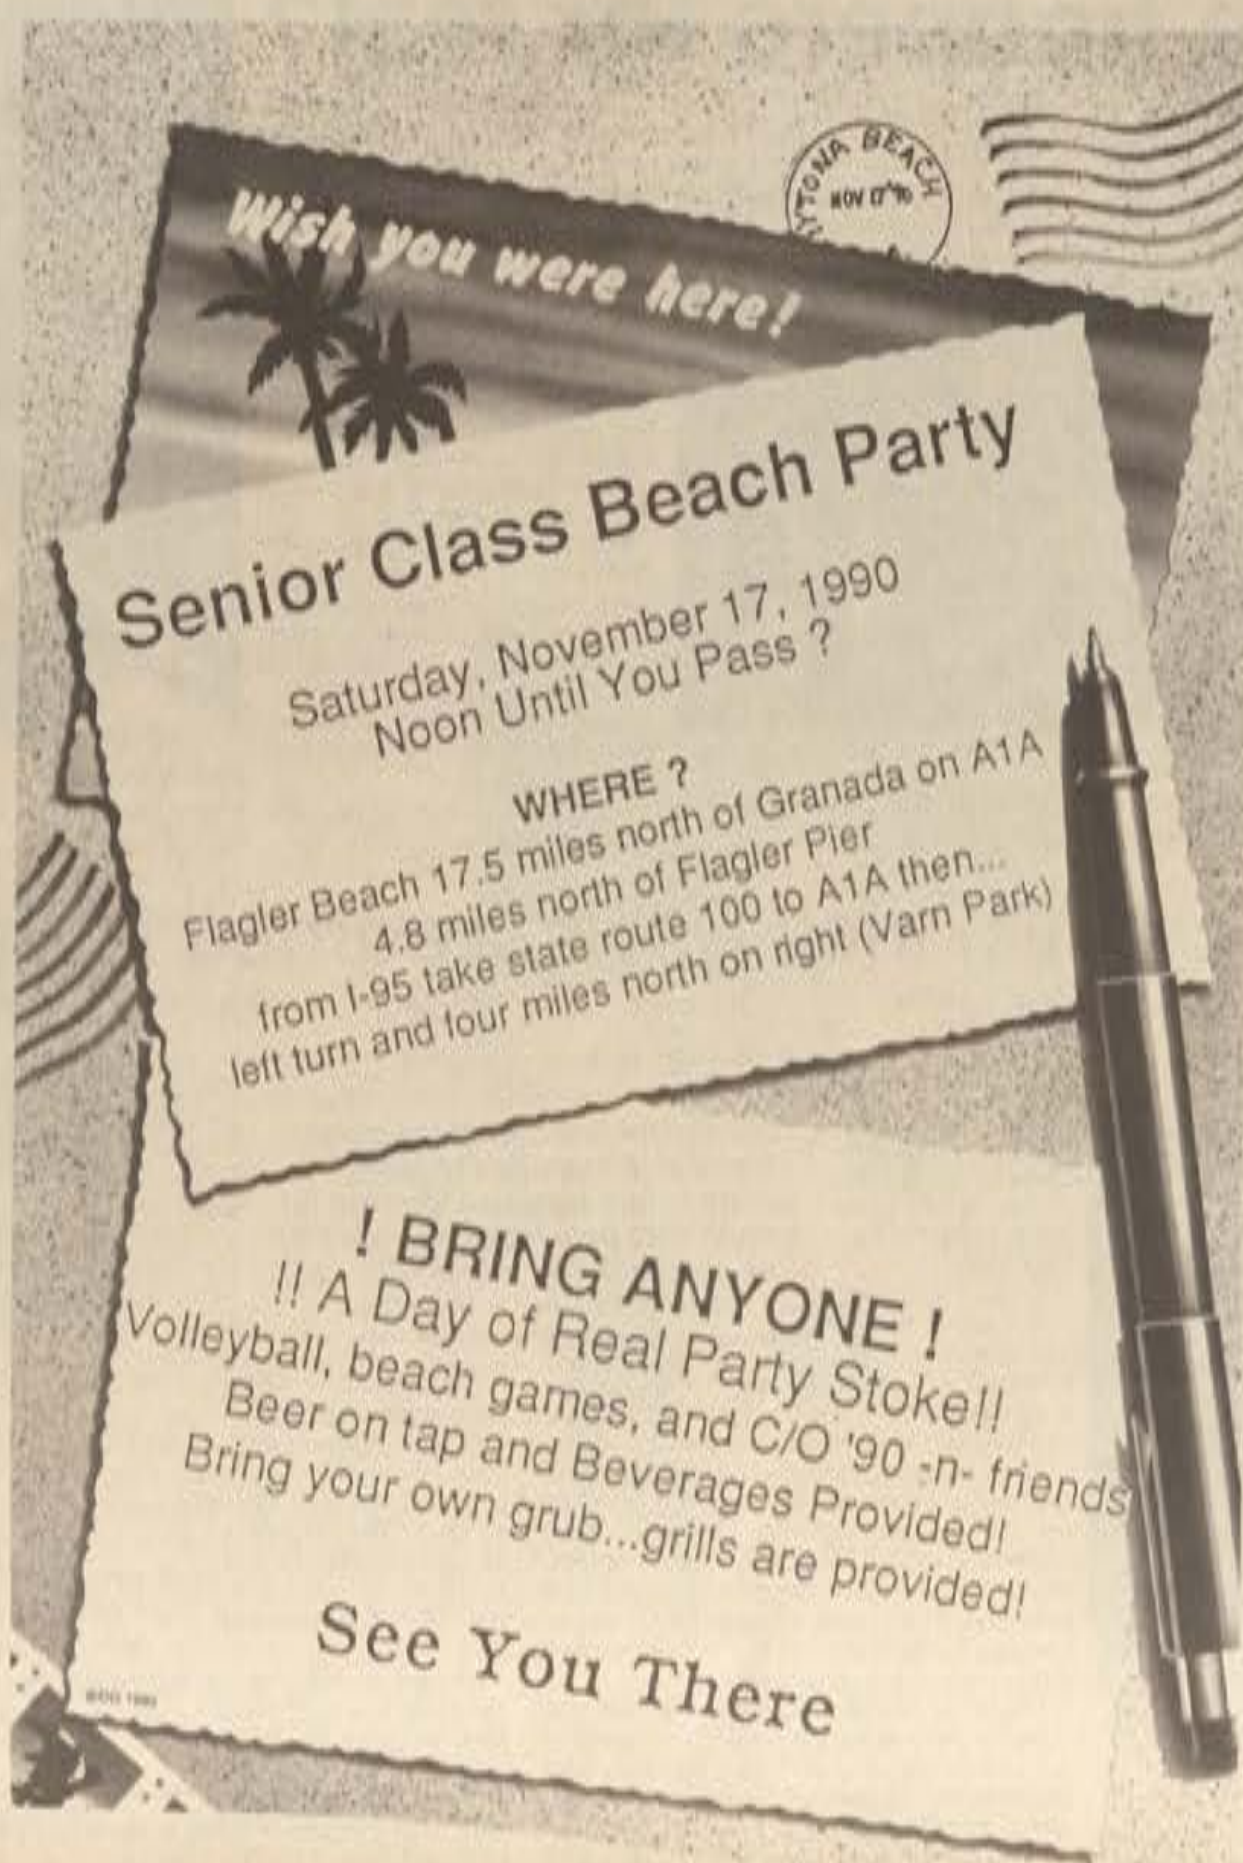 Wish you were here!
YTONA BEACH
NOV 17 '90
Senior Class Beach Party
Saturday, November 17, 1990
Noon Until You Pass ?
WHERE ?
Flagler Beach 17.5 miles north of Granada on A1A
4.8 miles north of Flagler Pier
from I-95 take state route 100 to A1A then...
left turn and four miles north on right (Varn Park)
! BRING ANYONE !
!! A Day of Real Party Stoke!!
Volleyball, beach games, and C/O '90 -n- friends
Beer on tap and Beverages Provided!
Bring your own grub...grills are provided!
See You There